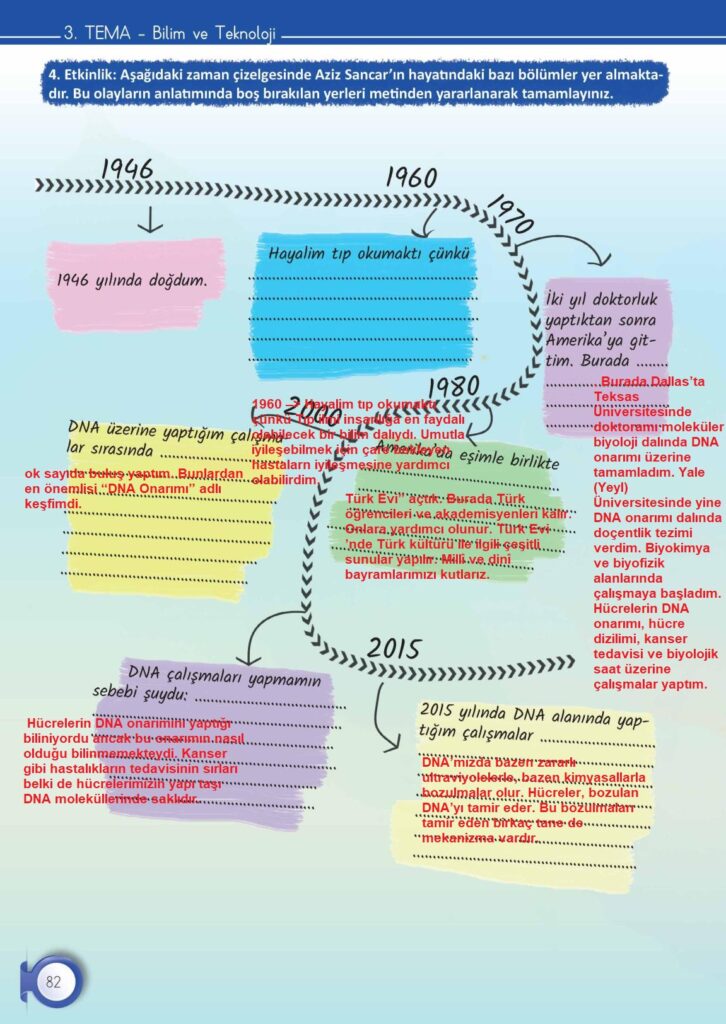 3. TEMA - Bilim ve Teknoloji
4. Etkinlik: Aşağıdaki zaman çizelgesinde Aziz Sancar’ın hayatındaki bazı bölümler yer almakta-
dır. Bu olayların anlatımında boş bırakılan yerleri metinden yararlanarak tamamlayınız.
1946
1960
1970
1946 yılında doğdum.
Hayalim tıp okumaktı çünkü
İki yıl doktorluk
yaptıktan sonra
Amerika’ya git-
tim. Burada ........
Burada Dallas’ta
Teksas
Üniversitesinde
doktoramı moleküler
biyoloji dalında DNA
onarımı üzerine
tamamladım. Yale
(Yeyl)
Üniversitesinde yine
DNA onarımı dalında
doçentlik tezimi
verdim. Biyokimya
ve biyofizik
alanlarında
çalışmaya başladım.
Hücrelerin DNA
onarımı, hücre
dizilimi, kanser
tedavisi ve biyolojik
saat üzerine
çalışmalar yaptım.
1980
2000
1960 --> Hayalim tıp okumaktı
çünkü Tıp ilmi insanlığa en faydalı
olabilecek bir bilim dalıydı. Umutla
iyileşebilmek için çare bekleyen
hastaların iyileşmesine yardımcı
olabilirdim.
DNA üzerine yaptığım çalışma
lar sırasında
ok sayıda buluş yaptım. Bunlardan
en önemlisi “DNA Onarımı” adlı
keşfimdi.
Amerika’da eşimle birlikte
Türk Evi” açtık. Burada Türk
öğrencileri ve akademisyenleri kalır.
Onlara yardımcı olunur. Türk Evi
’nde Türk kültürü ile ilgili çeşitli
sunular yapılır. Milli ve dini
bayramlarımızı kutlarız.
2015
DNA çalışmaları yapmamın
sebebi şuydu:
Hücrelerin DNA onarımını yaptığı
biliniyordu ancak bu onarımın nasıl
olduğu bilinmemekteydi. Kanser
gibi hastalıkların tedavisinin sırları
belki de hücrelerimizin yapı taşı
DNA moleküllerinde saklıdır.
2015 yılında DNA alanında yap-
tığım çalışmalar
DNA’mızda bazen zararlı
ultraviyolelerle, bazen kimyasallarla
bozulmalar olur. Hücreler, bozulan
DNA’yı tamir eder. Bu bozulmaları
tamir eden birkaç tane de
mekanizma vardır.
82